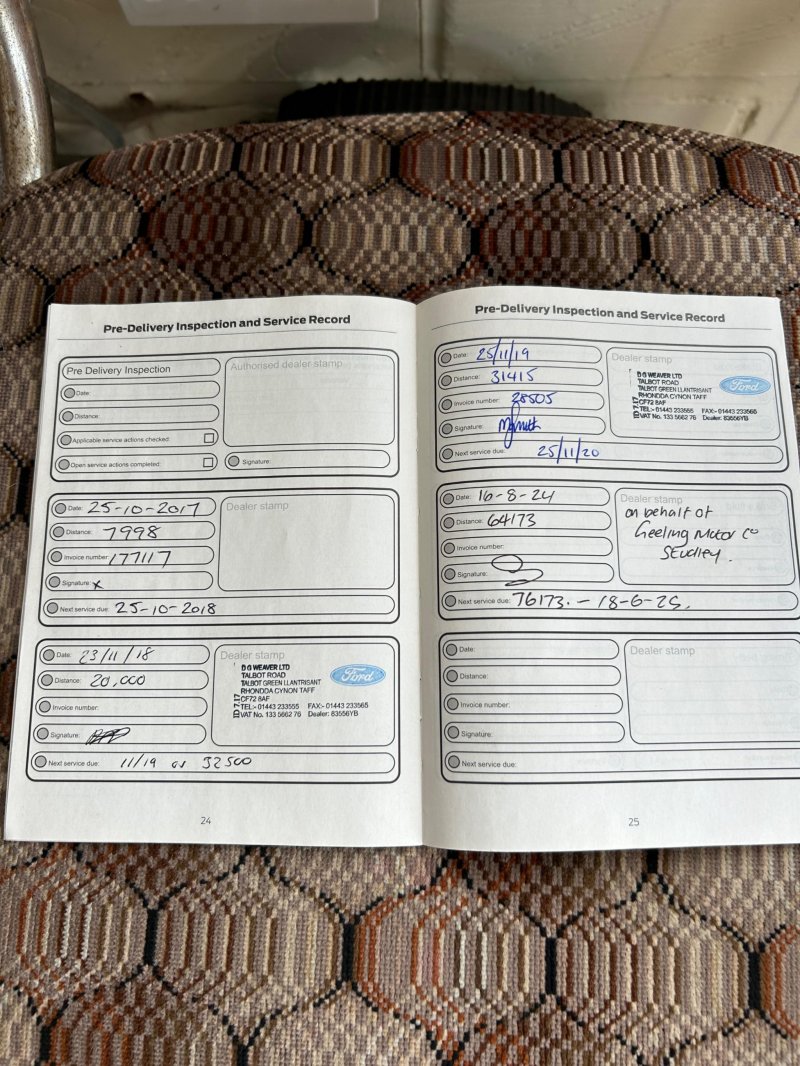 Pre-Delivery Inspection and Service Record
Pre Delivery Inspection
Authorised dealer stamp
Date:
Distance:
Applicable service actions checked:
Open service actions completed:
Signature:
Date: 25-10-2017
Dealer stamp
Distance: 7998
Invoice number: 177117
Signature: x
Next service due: 25-10-2018
Date: 23/11/18
Dealer stamp
Distance: 20,000
Invoice number:
Signature:
D G WEAVER LTD
TALBOT ROAD
TALBOT GREEN LLANTRISANT
RHONDDA CYNON TAFF
CF72 8AF
TEL:- 01443 233555 FAX:- 01443 233565
VAT No. 133 5662 76 Dealer: 83556YB
ID 7.17
Ford
Next service due: 11/19 or 32500
24
Pre-Delivery Inspection and Service Record
Date: 25/11/19
Dealer stamp
Distance: 31415
Invoice number: 28505
Signature:
D G WEAVER LTD
TALBOT ROAD
TALBOT GREEN LLANTRISANT
RHONDDA CYNON TAFF
CF72 8AF
TEL:- 01443 233555 FAX:- 01443 233565
VAT No. 133 5662 76 Dealer: 83556YB
Ford
Next service due: 25/11/20
Date: 16-8-24
Dealer stamp
Distance: 64173
Invoice number:
Signature:
on behalf of
Geeling Motor Co
Studley.
Next service due: 76173. - 18-6-25.
Date:
Dealer stamp
Distance:
Invoice number:
Signature:
Next service due:
25